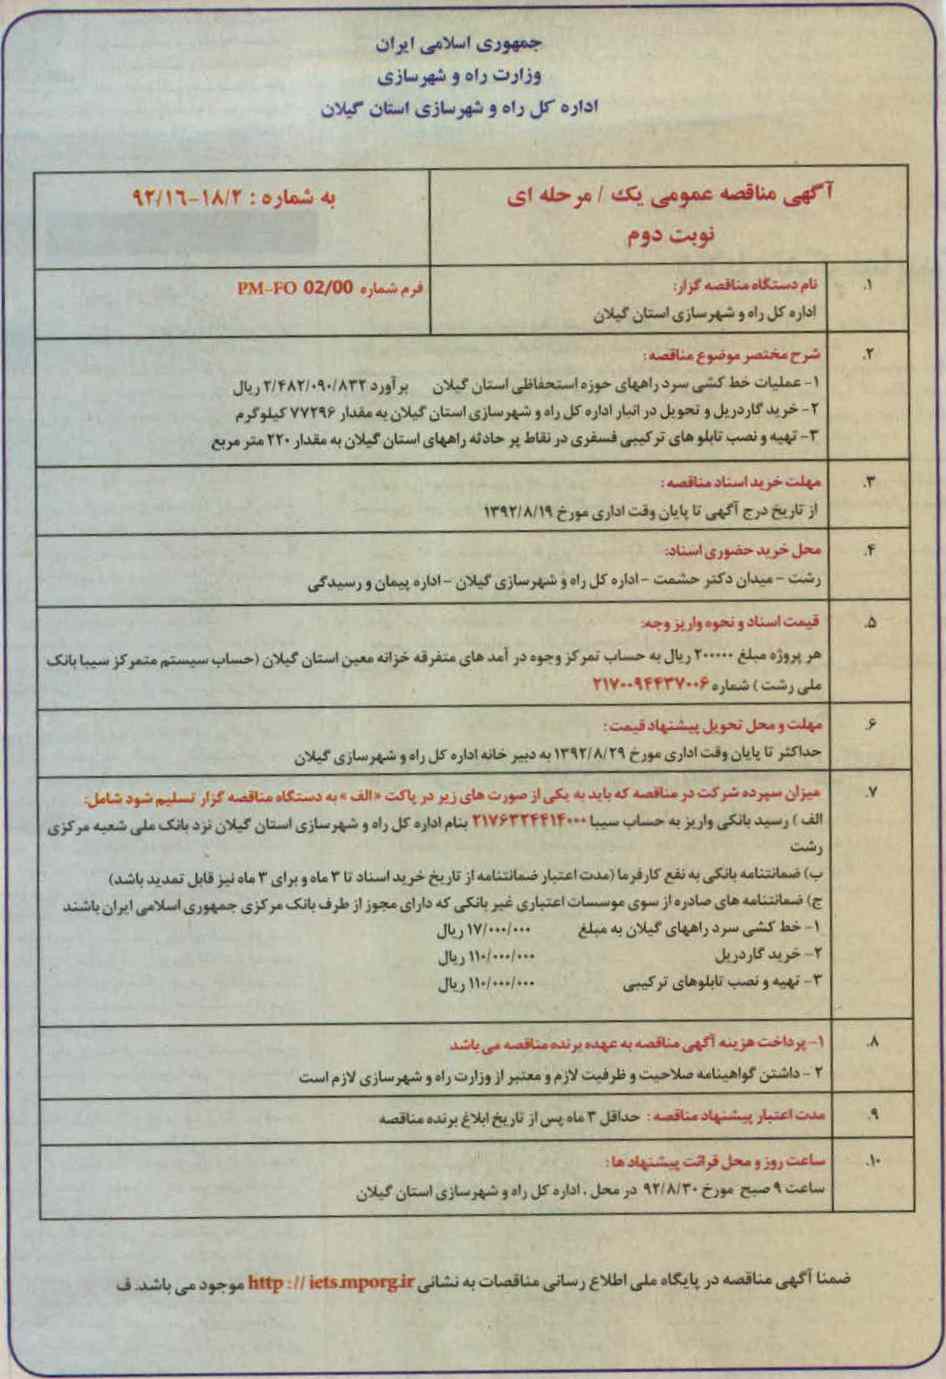 جمهوری اسلامی ایران
وزارت راه و شهرسازی
اداره کل راه و شهرسازی استان گیلان
آگهی مناقصه عمومی یک / مرحله ای
نوبت دوم
به شماره : ۱۸/۲-۹۲/۱۶
۱. نام دستگاه مناقصه گزار:
اداره کل راه و شهرسازی استان گیلان
فرم شماره PM-FO 02/00
۲. شرح مختصر موضوع مناقصه:
۱- عملیات خط کشی سرد راههای حوزه استحفاظی استان گیلان برآورد ۲/۴۸۲/۰۹۰/۸۳۲ ریال
۲- خرید گاردریل و تحویل در انبار اداره کل راه و شهرسازی استان گیلان به مقدار ۷۷۲۹۶ کیلوگرم
۳- تهیه و نصب تابلو های ترکیبی فسفری در نقاط پر حادثه راههای استان گیلان به مقدار ۲۲۰ متر مربع
۳. مهلت خرید اسناد مناقصه:
از تاریخ درج آگهی تا پایان وقت اداری مورخ ۱۳۹۲/۸/۱۹
۴. محل خرید حضوری اسناد:
رشت - میدان دکتر حشمت - اداره کل راه و شهرسازی گیلان - اداره پیمان و رسیدگی
۵. قیمت اسناد و نحوه واریز وجه:
هر پروژه مبلغ ۲۰۰۰۰۰ ریال به حساب تمرکز وجوه در آمد های متفرقه خزانه معین استان گیلان (حساب سیستم متمرکز سیبا بانک
ملی رشت ) شماره ۲۱۷۰۰۹۴۴۳۷۰۰۶
۶. مهلت و محل تحویل پیشنهاد قیمت:
حداکثر تا پایان وقت اداری مورخ ۱۳۹۲/۸/۲۹ به دبیر خانه اداره کل راه و شهرسازی گیلان
۷. میزان سپرده شرکت در مناقصه که باید به یکی از صورت های زیر در پاکت «الف» به دستگاه مناقصه گزار تسلیم شود شامل:
الف ) رسید بانکی واریز به حساب سیبا ۲۱۷۶۳۲۴۴۱۴۰۰۰ بنام اداره کل راه و شهرسازی استان گیلان نزد بانک ملی شعبه مرکزی
رشت
ب) ضمانتنامه بانکی به نفع کارفرما (مدت اعتبار ضمانتنامه از تاریخ خرید اسناد تا ۳ ماه و برای ۳ ماه نیز قابل تمدید باشد)
ج) ضمانتنامه های صادره از سوی موسسات اعتباری غیر بانکی که دارای مجوز از طرف بانک مرکزی جمهوری اسلامی ایران باشند
۱- خط کشی سرد راههای گیلان به مبلغ ۱۷/۰۰۰/۰۰۰ ریال
۲- خرید گاردریل ۱۱۰/۰۰۰/۰۰۰ ریال
۳- تهیه و نصب تابلوهای ترکیبی ۱۱۰/۰۰۰/۰۰۰ ریال
۸. ۱- پرداخت هزینه آگهی مناقصه به عهده برنده مناقصه می باشد
۲ - داشتن گواهینامه صلاحیت و ظرفیت لازم و معتبر از وزارت راه و شهرسازی لازم است
۹. مدت اعتبار پیشنهاد مناقصه : حداقل ۳ ماه پس از تاریخ ابلاغ برنده مناقصه
۱۰. ساعت روز و محل قرائت پیشنهاد ها:
ساعت ۹ صبح مورخ ۹۲/۸/۳۰ در محل . اداره کل راه و شهرسازی استان گیلان
ضمنا آگهی مناقصه در پایگاه ملی اطلاع رسانی مناقصات به نشانی http :// iets.mporg.ir موجود می باشد. ف